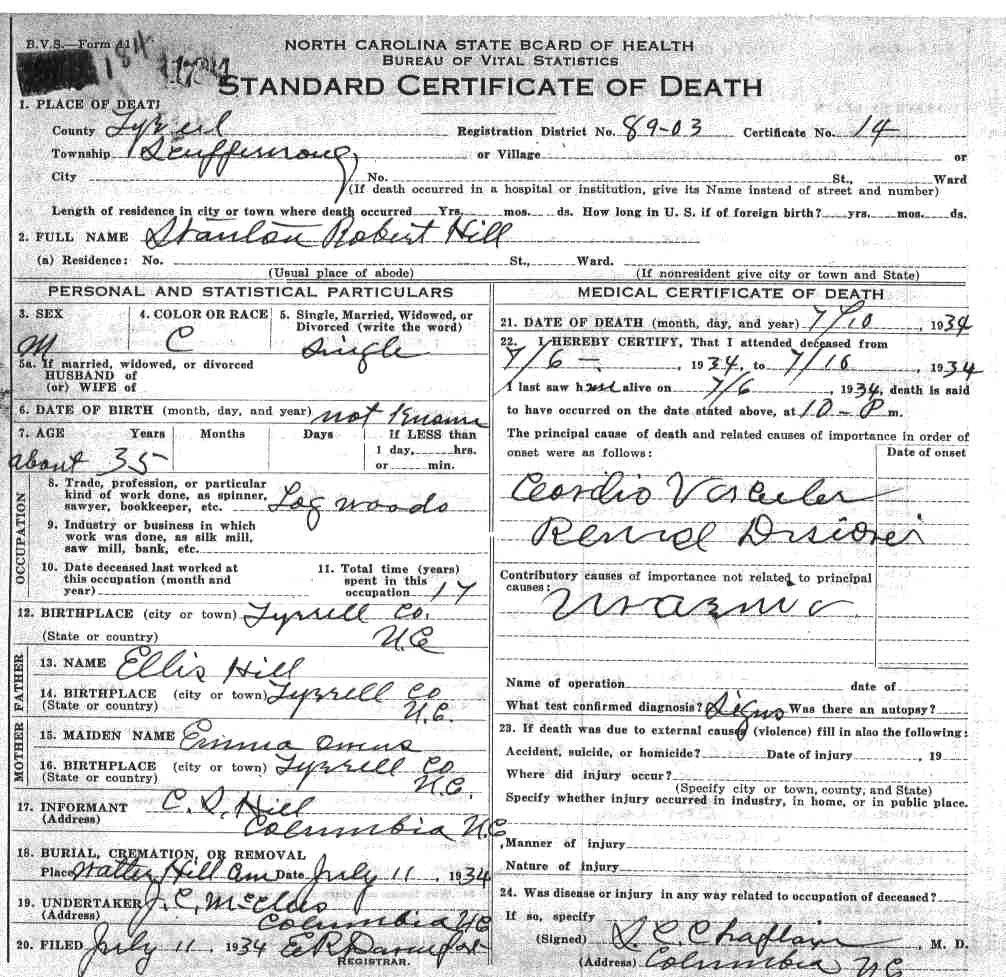 B.V.S.—Form 11
184
NORTH CAROLINA STATE BOARD OF HEALTH
BUREAU OF VITAL STATISTICS
STANDARD CERTIFICATE OF DEATH
1. PLACE OF DEATH
County Registration District No. 89-03 Certificate No. 14
Township or Village or
City No. St., Ward
(If death occurred in a hospital or institution, give its Name instead of street and number)
Length of residence in city or town where death occurred Yrs. mos. ds. How long in U. S. if of foreign birth? yrs. mos. ds.
2. FULL NAME Robert Hill
(a) Residence: No. St., Ward.
(Usual place of abode) (If nonresident give city or town and State)
PERSONAL AND STATISTICAL PARTICULARS
3. SEX M
4. COLOR OR RACE C
5. Single, Married, Widowed, or Divorced (write the word) Single
5a. If married, widowed, or divorced
HUSBAND of
(or) WIFE of
6. DATE OF BIRTH (month, day, and year) not Known
7. AGE Years Months Days If LESS than
1 day, hrs.
about 35 or min.
OCCUPATION
8. Trade, profession, or particular
kind of work done, as spinner,
sawyer, bookkeeper, etc. Log woods
9. Industry or business in which
work was done, as silk mill,
saw mill, bank, etc.
10. Date deceased last worked at
this occupation (month and
year)
11. Total time (years)
spent in this
occupation 17
12. BIRTHPLACE (city or town) Tyrrell Co.
(State or country) N.C
FATHER
13. NAME Ellis Hill
14. BIRTHPLACE (city or town) Tyrrell Co
(State or country) N.C.
MOTHER
15. MAIDEN NAME Emma Owens
16. BIRTHPLACE (city or town) Tyrrell Co
(State or country) N.C.
17. INFORMANT C. S. Hill
(Address) Columbia N.C
18. BURIAL, CREMATION, OR REMOVAL
Place Walter Hill Date July 11, 1934
19. UNDERTAKER J. C.
(Address) Columbia N.C
20. FILED July 11, 1934
REGISTRAR.
MEDICAL CERTIFICATE OF DEATH
21. DATE OF DEATH (month, day, and year) 7/10, 1934
22. I HEREBY CERTIFY, That I attended deceased from
7/6 –, 1934, to 7/10, 1934
I last saw him alive on 7/6, 1934, death is said
to have occurred on the date stated above, at 10 – P m.
The principal cause of death and related causes of importance in order of
onset were as follows: Date of onset
Cardio Vascular
Renal
Contributory causes of importance not related to principal
causes:
Name of operation date of
What test confirmed diagnosis? Signs Was there an autopsy?
23. If death was due to external causes (violence) fill in also the following:
Accident, suicide, or homicide? Date of injury, 19
Where did injury occur?
(Specify city or town, county, and State)
Specify whether injury occurred in industry, in home, or in public place.
Manner of injury
Nature of injury
24. Was disease or injury in any way related to occupation of deceased?
If so, specify
(Signed), M. D.
(Address) Columbia N.C